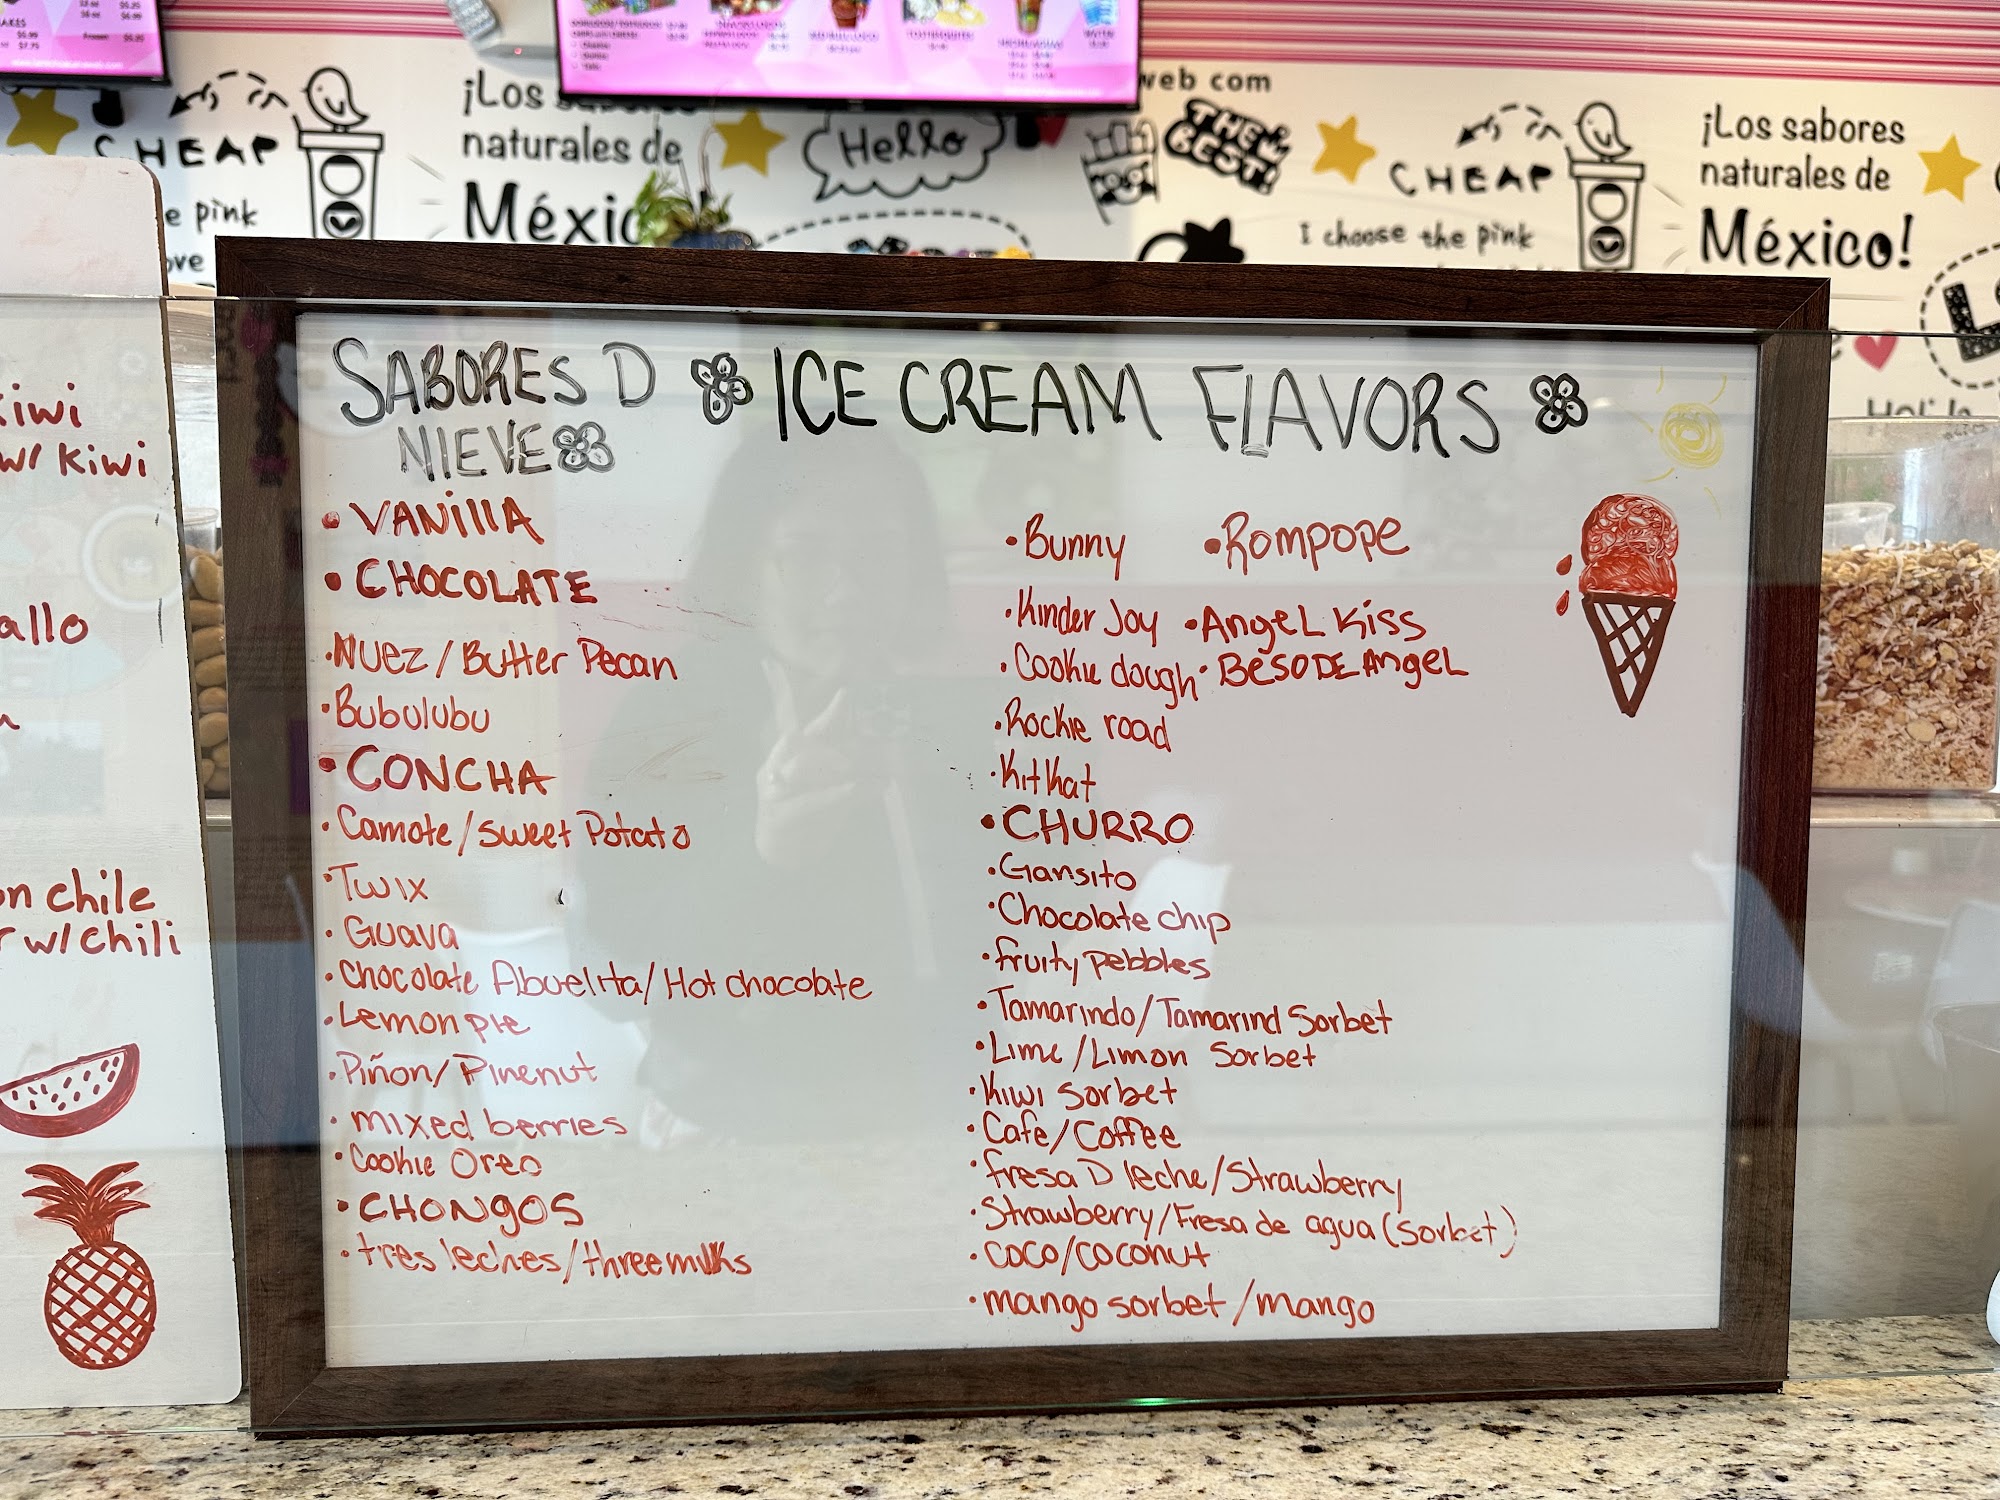 ¡Los sabores
naturales de
México
CHEAP
e pink
ove
Hello
web com
THE BEST!
CHEAP
I choose the pink
¡Los sabores
naturales de
México!
kiwi
w/ kiwi
allo
on chile
r w/ chili
SABORES D
NIEVE
ICE CREAM FLAVORS
• VANIllA
• CHOCOLATE
• Nuez / Butter Pecan
• Bubulubu
• CONCHA
• Camote/sweet Potato
• Twix
• Guava
• Chocolate Abuelita/Hot chocolate
• Lemon pie
• Piñon/Pinenut
• mixed berries
• Cookie Oreo
• CHONgOS
• tres leches/three milks
• Bunny • Rompope
• Kinder Joy • Angel Kiss
• Cookie dough • BESO DE AngeL
• Rockie road
• KitKat
• CHURRO
• Gansito
• Chocolate chip
• fruity pebbles
• Tamarindo/Tamarind Sorbet
• Lime/Limon Sorbet
• Kiwi sorbet
• Cafe/Coffee
• fresa D leche/Strawberry
• Strawberry/Fresa de agua (sorbet)
• coco/coconut
• mango sorbet/mango